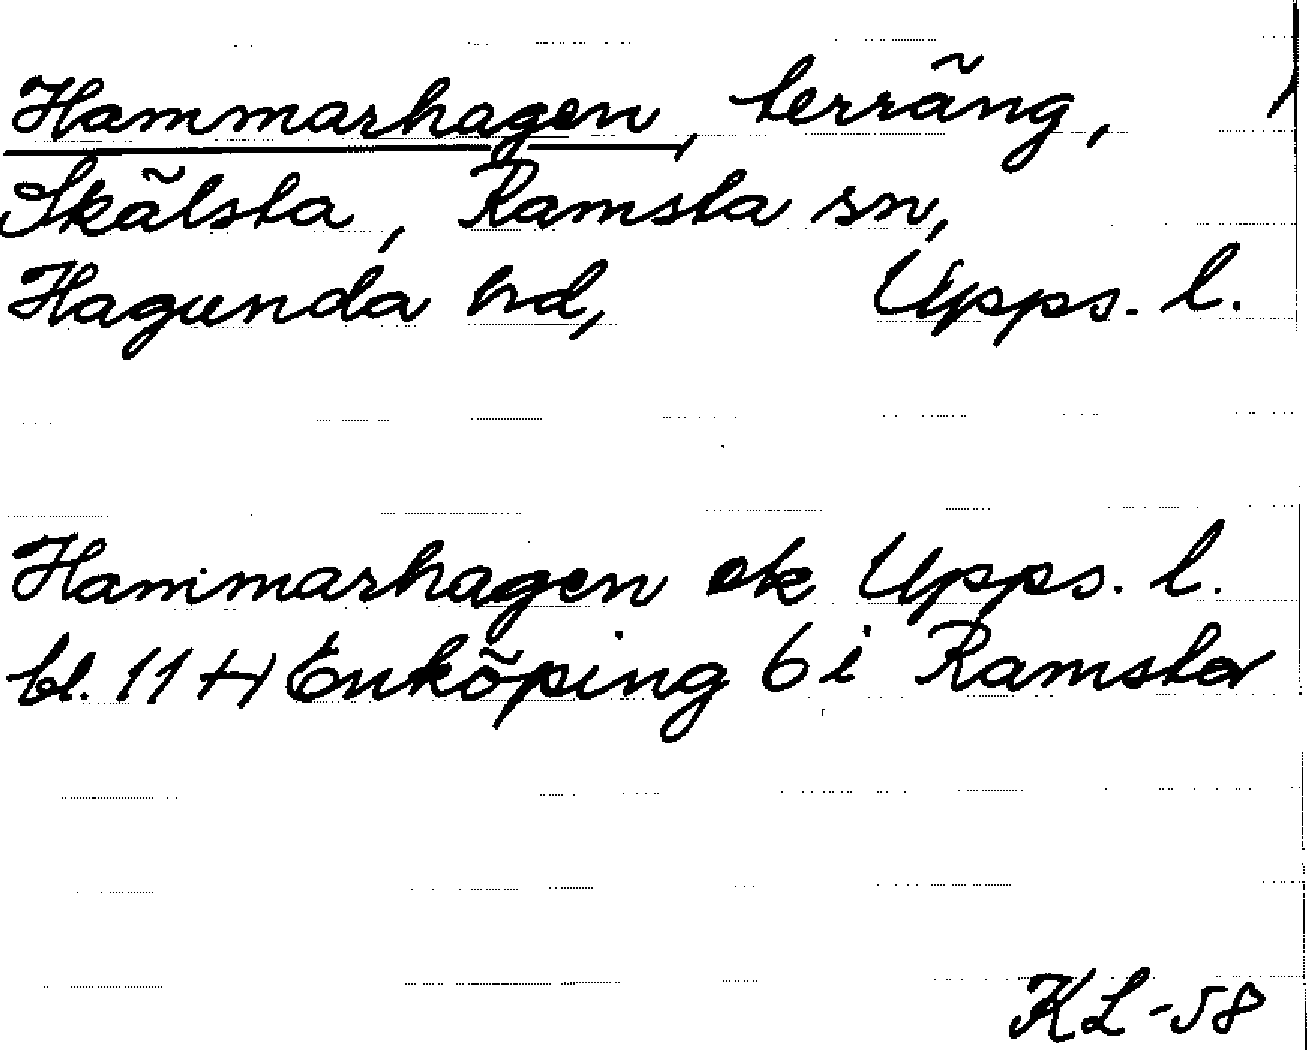 Hammarhagen, terräng,
Skälsta, Ramsta sn,
Hagunda hd, Upps. l.
Hammarhagen ek Upps. l.
bl. 11 H Enköping 6 i Ramsta
KL -58